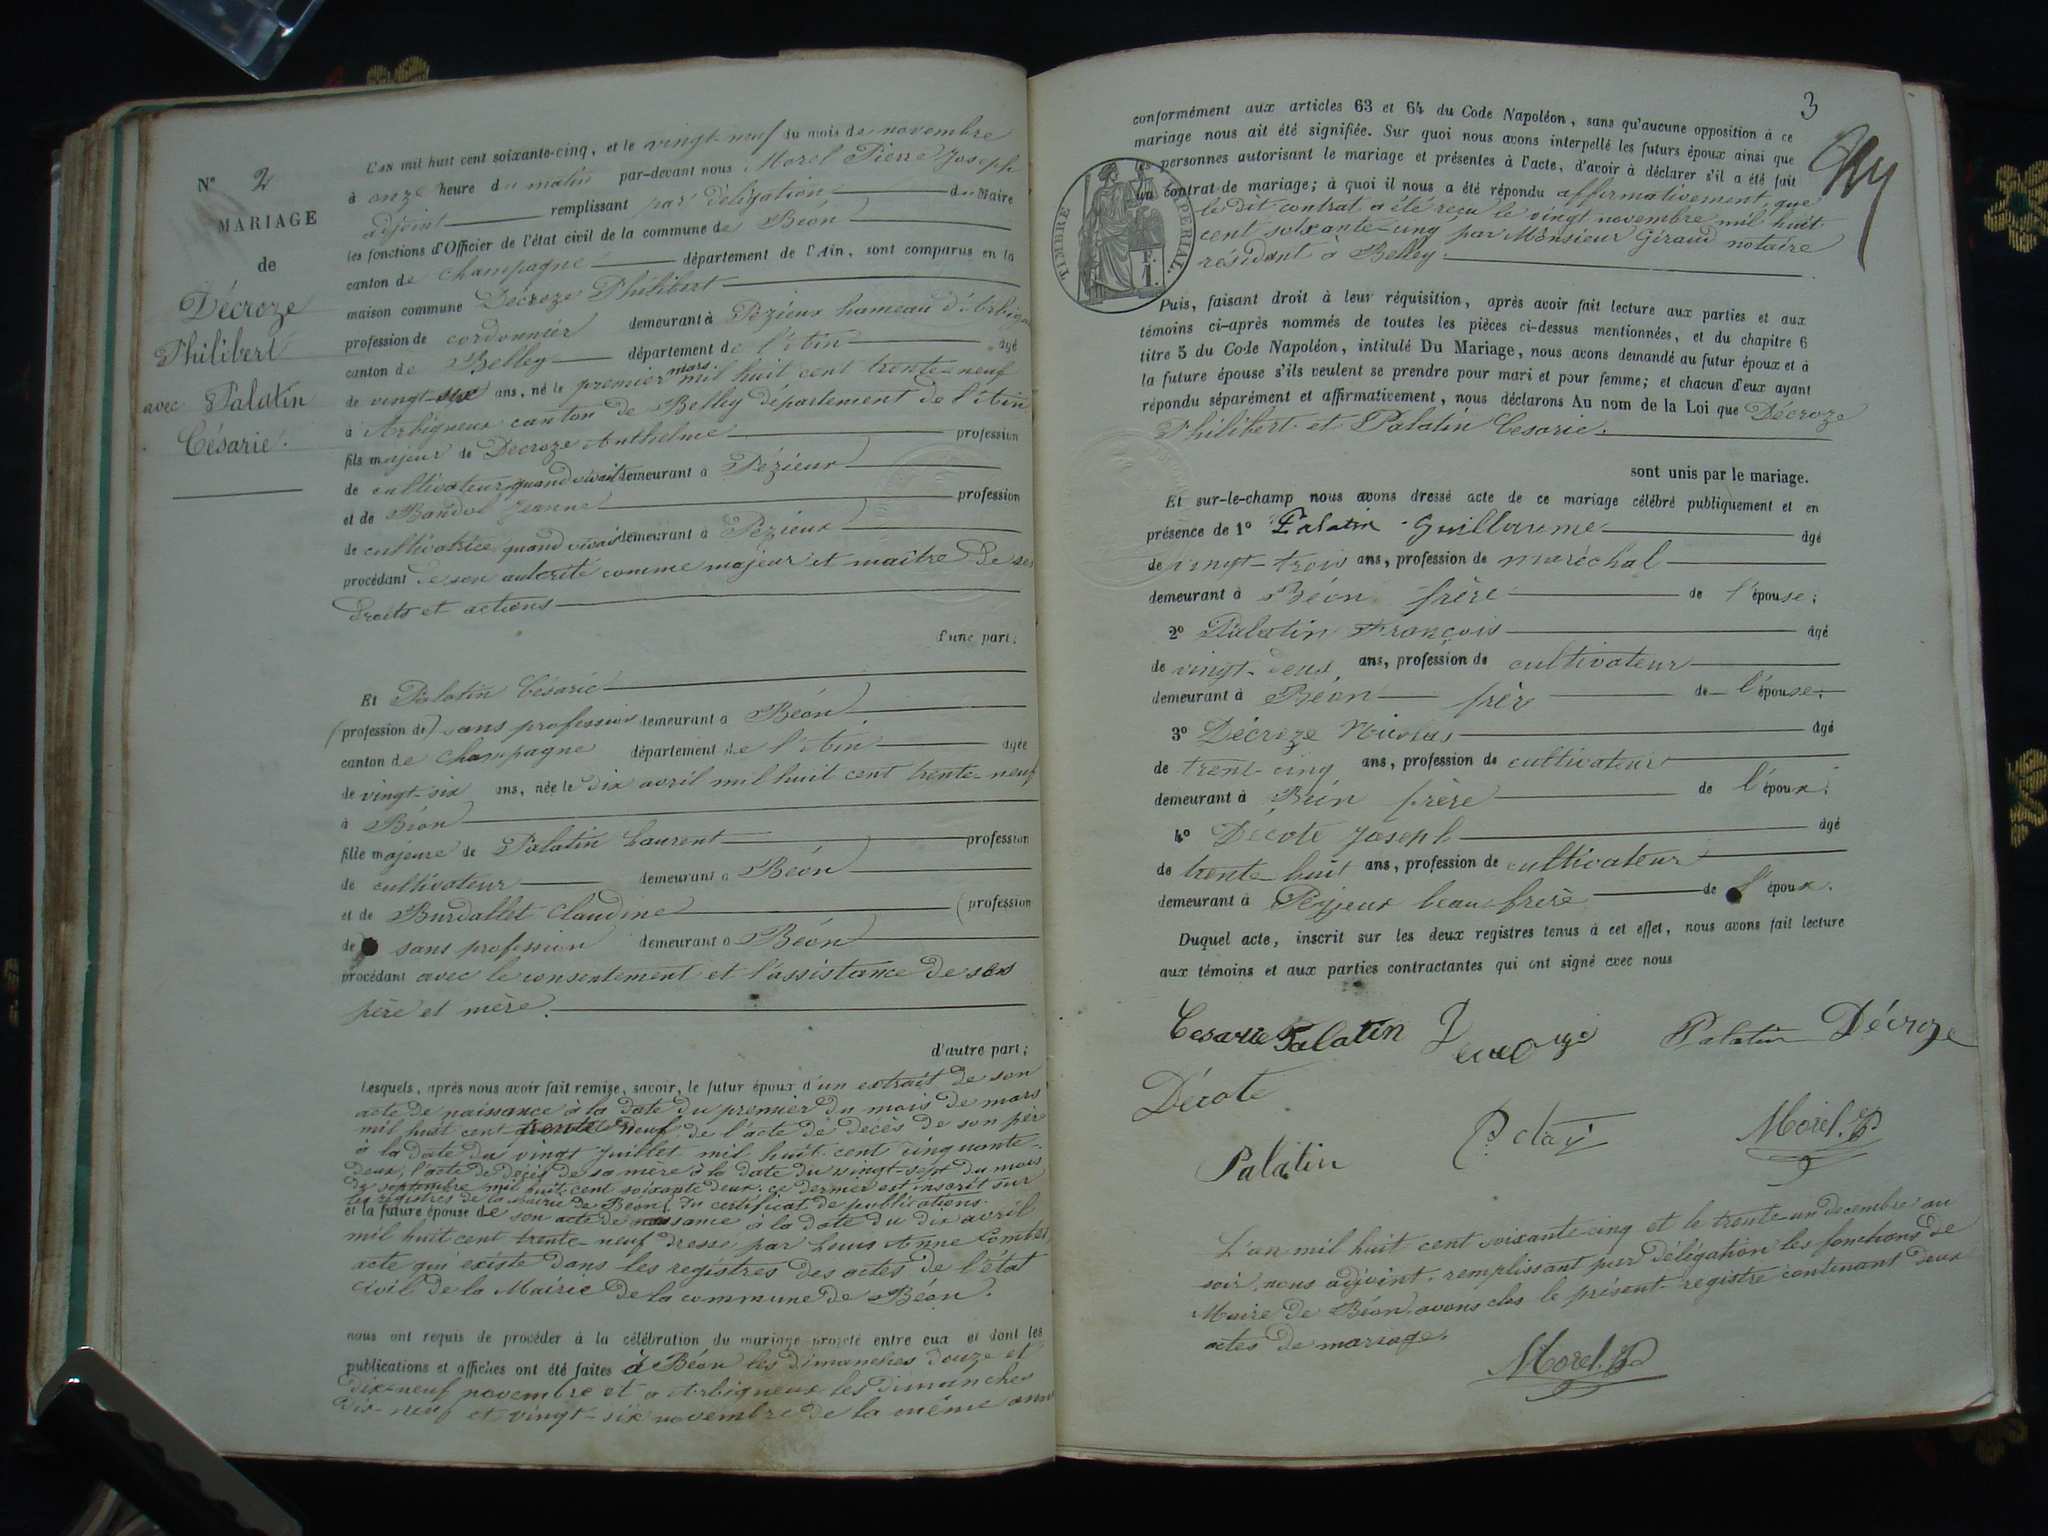 N° 2
MARIAGE
de
Décroze
Philibert
avec Palatin
Césarie.
L'AN mil huit cent soixante-cinq, et le vingt-neuf du mois de novembre
à onze heure du matin par-devant nous Morel Pierre Joseph
adjoint remplissant par délégation du Maire
les fonctions d'Officier de l'état civil de la commune de Béon
canton de Champagne département de l'Ain, sont comparus en la
maison commune Décroze Philibert
profession de cordonnier demeurant à Pézieux hameau d'Arbignieu
canton de Belley département de l'Ain âgé
de vingt-six ans, né le premier mars mil huit cent trente-neuf
à Arbignieux canton de Belley département de l'Ain
fils majeur de Décroze Anthelme profession
de cultivateur quand vivait demeurant à Pézieux
et de Bandol Jeanne profession
de cultivatrice quand vivait demeurant à Pézieux
procédant de son autorité comme majeur et maître de ses
droits et actions
d'une part;
Et Palatin Césarie
(profession de) sans profession demeurant à Béon
canton de Champagne département de l'Ain âgée
de vingt-six ans, née le dix avril mil huit cent trente-neuf
à Béon
fille majeure de Palatin Laurent profession
de cultivateur demeurant à Béon
et de Burdallet Claudine (profession
de sans profession demeurant à Béon
procédant avec le consentement et l'assistance de ses
père et mère.
d'autre part;
Lesquels, après nous avoir fait remise, savoir, le futur époux d'un extrait de son
acte de naissance à la date du premier du mois de mars
mil huit cent trente neuf, de l'acte de décès de son père
à la date du vingt Juillet mil huit cent cinquante-
deux, l'acte de décès de sa mère à la date du vingt-sept du mois
de septembre mil huit cent soixante deux. ce dernier est inscrit sur
les registres de la Mairie de Béon, du certificat de publications.
et la future épouse de son acte de naissance à la date du dix avril
mil huit cent trente-neuf dressé par Louis Anne Combet,
acte qui existe dans les registres des actes de l'état
civil de la Mairie de la commune de Béon.
nous ont requis de procéder à la célébration du mariage projeté entre eux et dont les
publications et affiches ont été faites à Béon les dimanches douze et
dix-neuf novembre et à Arbigneux les dimanches
dix-neuf et vingt-six novembre de la même année
3
conformément aux articles 63 et 64 du Code Napoléon, sans qu'aucune opposition à ce
mariage nous ait été signifiée. Sur quoi nous avons interpellé les futurs époux ainsi que
les personnes autorisant le mariage et présentes à l'acte, d'avoir à déclarer s'il a été fait
un contrat de mariage; à quoi il nous a été répondu affirmativement, que
le dit contrat a été reçu le vingt novembre mil huit
cent soixante-cinq par Monsieur Giraud notaire
résidant à Belley.
TIMBRE IMPÉRIAL
Puis, faisant droit à leur réquisition, après avoir fait lecture aux parties et aux
témoins ci-après nommés de toutes les pièces ci-dessus mentionnées, et du chapitre 6
titre 5 du Code Napoléon, intitulé Du Mariage, nous avons demandé au futur époux et à
la future épouse s'ils veulent se prendre pour mari et pour femme; et chacun d'eux ayant
répondu séparément et affirmativement, nous déclarons Au nom de la Loi que Décroze
Philibert et Palatin Césarie.
sont unis par le mariage.
Et sur-le-champ nous avons dressé acte de ce mariage célébré publiquement et en
présence de 1° Palatin Guillaume âgé
de vingt-trois ans, profession de maréchal
demeurant à Béon frère de l'épouse;
2° Palatin François âgé
de vingt-deux ans, profession de cultivateur
demeurant à Béon frère de l'épouse;
3° Décroze Nicolas âgé
de trent-cinq ans, profession de cultivateur
demeurant à Béon frère de l'époux;
4° Décote Joseph âgé
de trente-huit ans, profession de cultivateur
demeurant à Pezieux beau-frère de l'époux.
Duquel acte, inscrit sur les deux registres tenus à cet effet, nous avons fait lecture
aux témoins et aux parties contractantes qui ont signé avec nous
Cesarie Palatin Palatin Décroze
Décote
Palatin Morel. P
L'an mil huit cent soixante-cinq et le trente-un decembre au
soir, nous adjoint, remplissant par délégation les fonctions de
Maire de Béon, avons clos le présent registre contenant deux
actes de mariage.
Morel. P